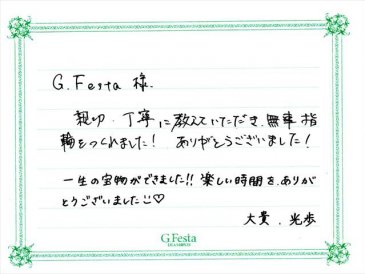 G.Festa 様.
親切、丁寧に教えていただき、無事指
輪をつくれました！ ありがとうございました！
一生の宝物ができました!! 楽しい時間を、ありが
とうございました♡
大貴、光歩
G.Festa